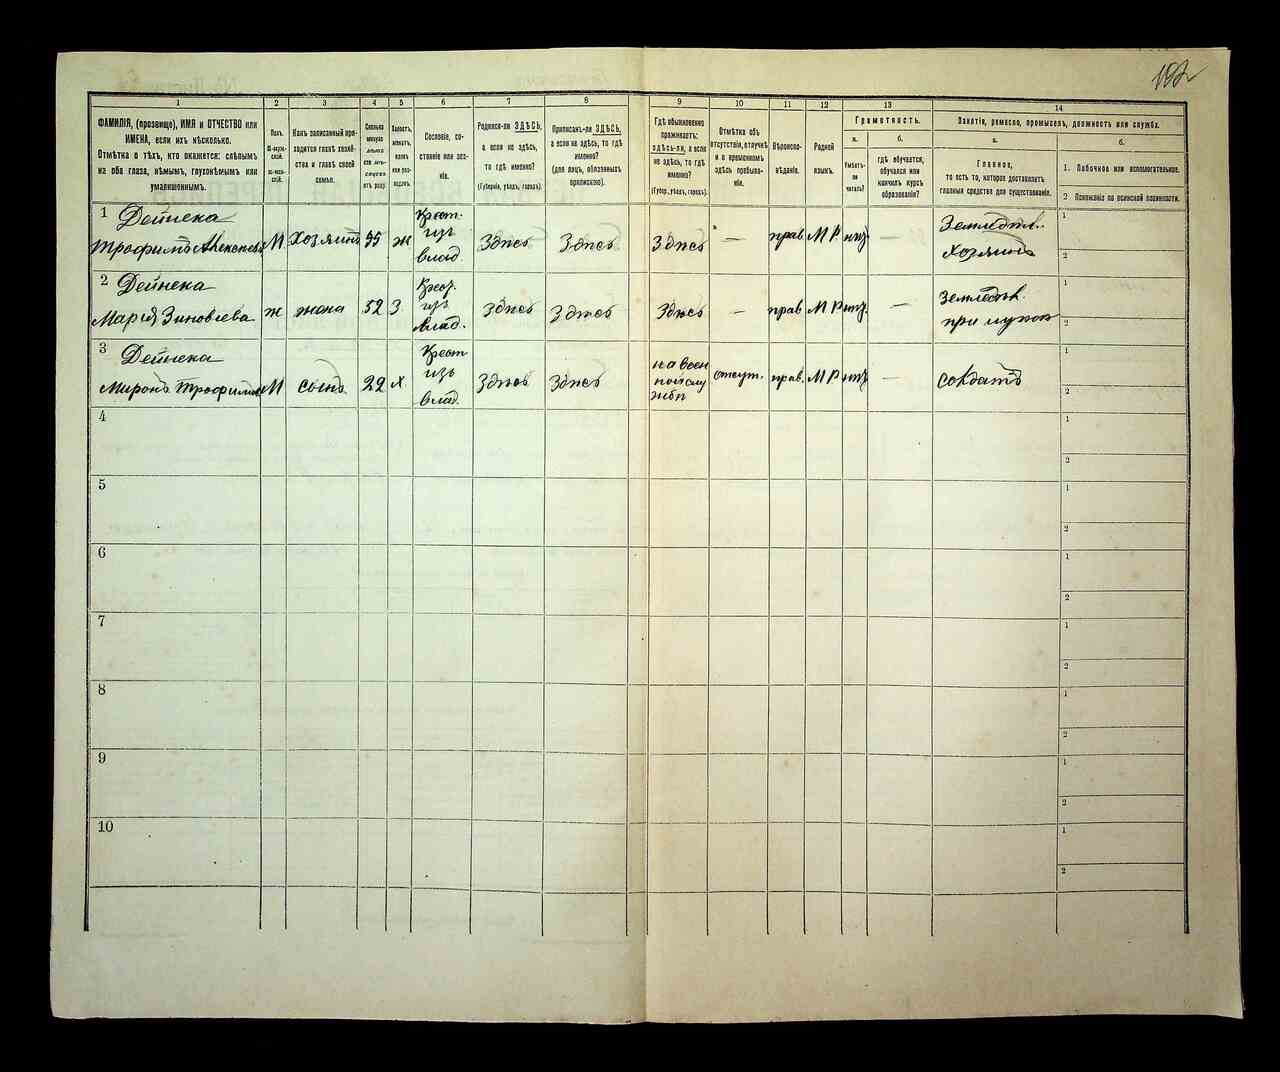 192
1 2 3 4 5 6 7 8 9 10 11 12 13 14
ФАМИЛІЯ, (прозвище), ИМЯ и ОТЧЕСТВО или
ИМЕНА, если ихъ нѣсколько.
Отмѣтка о тѣхъ, кто окажется: слѣпымъ
на оба глаза, нѣмымъ, глухонѣмымъ или
умалишеннымъ.
Полъ.
М-мужской.
Ж-женскій.
Какъ записанный приходится
главѣ хозяйства
и главѣ своей
семьи.
Сколько
минуло
лѣтъ
или мѣсяцевъ
отъ роду.
Холостъ,
женатъ,
вдовъ
или разведенъ.
Сословіе, состояніе
или званіе.
Родился-ли ЗДѢСЬ,
а если не здѣсь,
то гдѣ именно?
(Губернія, уѣздъ, городъ).
Приписанъ-ли ЗДѢСЬ,
а если не здѣсь, то гдѣ
именно?
(для лицъ, обязанныхъ
припискою).
Гдѣ обыкновенно
проживаетъ:
здѣсь-ли, а если
не здѣсь, то гдѣ
именно?
(Губер., уѣздъ, городъ).
Отмѣтка объ
отсутствіи, отлучкѣ
и о временномъ
здѣсь пребываніи.
Вѣроисповѣданіе.
Родной
языкъ.
Грамотность.
а.
Умѣетъ-ли
читать?
б.
гдѣ обучается,
обучался или
кончилъ курсъ
образованія?
Занятіе, ремесло, промыселъ, должность или служба.
а.
Главное,
то есть то, которое доставляетъ
главныя средства для существованія.
б.
1. Побочное или вспомогательное.
2. Положеніе по воинской повинности.
1 Дейнека
Трофимъ Алексѣевъ М Хозяинъ 55 ж Крест. изъ влад. Здѣсь Здѣсь Здѣсь — прав М Р нѣтъ — Земледѣл. хозяинъ 1 2
2 Дейнека
Марія Зиновіева ж жена 52 З Крест. изъ влад. Здѣсь Здѣсь Здѣсь — прав М Р нѣтъ — Земледѣл. при мужѣ 1 2
3 Дейнека
Миронъ Трофимовъ М сынъ 22 х. Крест изъ влад. Здѣсь Здѣсь на воен ной слу жбѣ отсут. прав. М Р нѣтъ — солдатъ 1 2
4 1 2
5 1 2
6 1 2
7 1 2
8 1 2
9 1 2
10 1 2